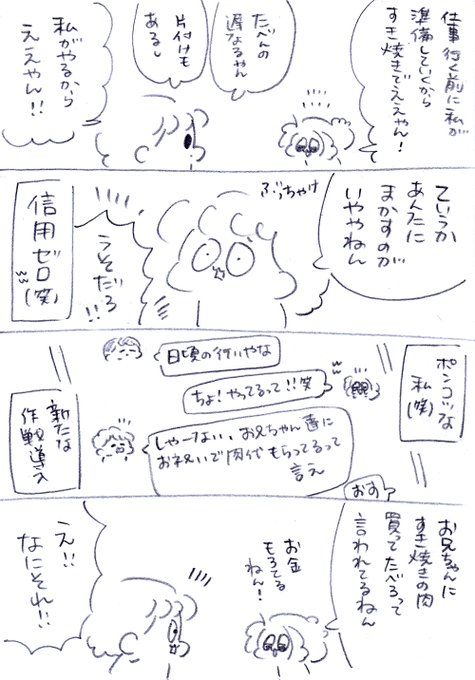 仕事行く前に私が
準備していくから
すき焼きでええやん!
たべんの
遅なるやん
片付けも
あるし
私がやるから
ええやん!!
ていうか
あんたに
まかすのが
いややねん
ぶっちゃけ
うそだろ!!
信用ゼロ(笑)
ポンコツな
私(笑)
日頃の行いやな
ちょ!やってるって!!笑
しゃーない、お兄ちゃん達に
お祝いで肉代もらってるって
言え
おす
新たな
作戦導入
お兄ちゃんに
すき焼きの肉
買ってたべろって
言われてるねん
お金
もろてる
ねん!
え!!
なにそれ!!